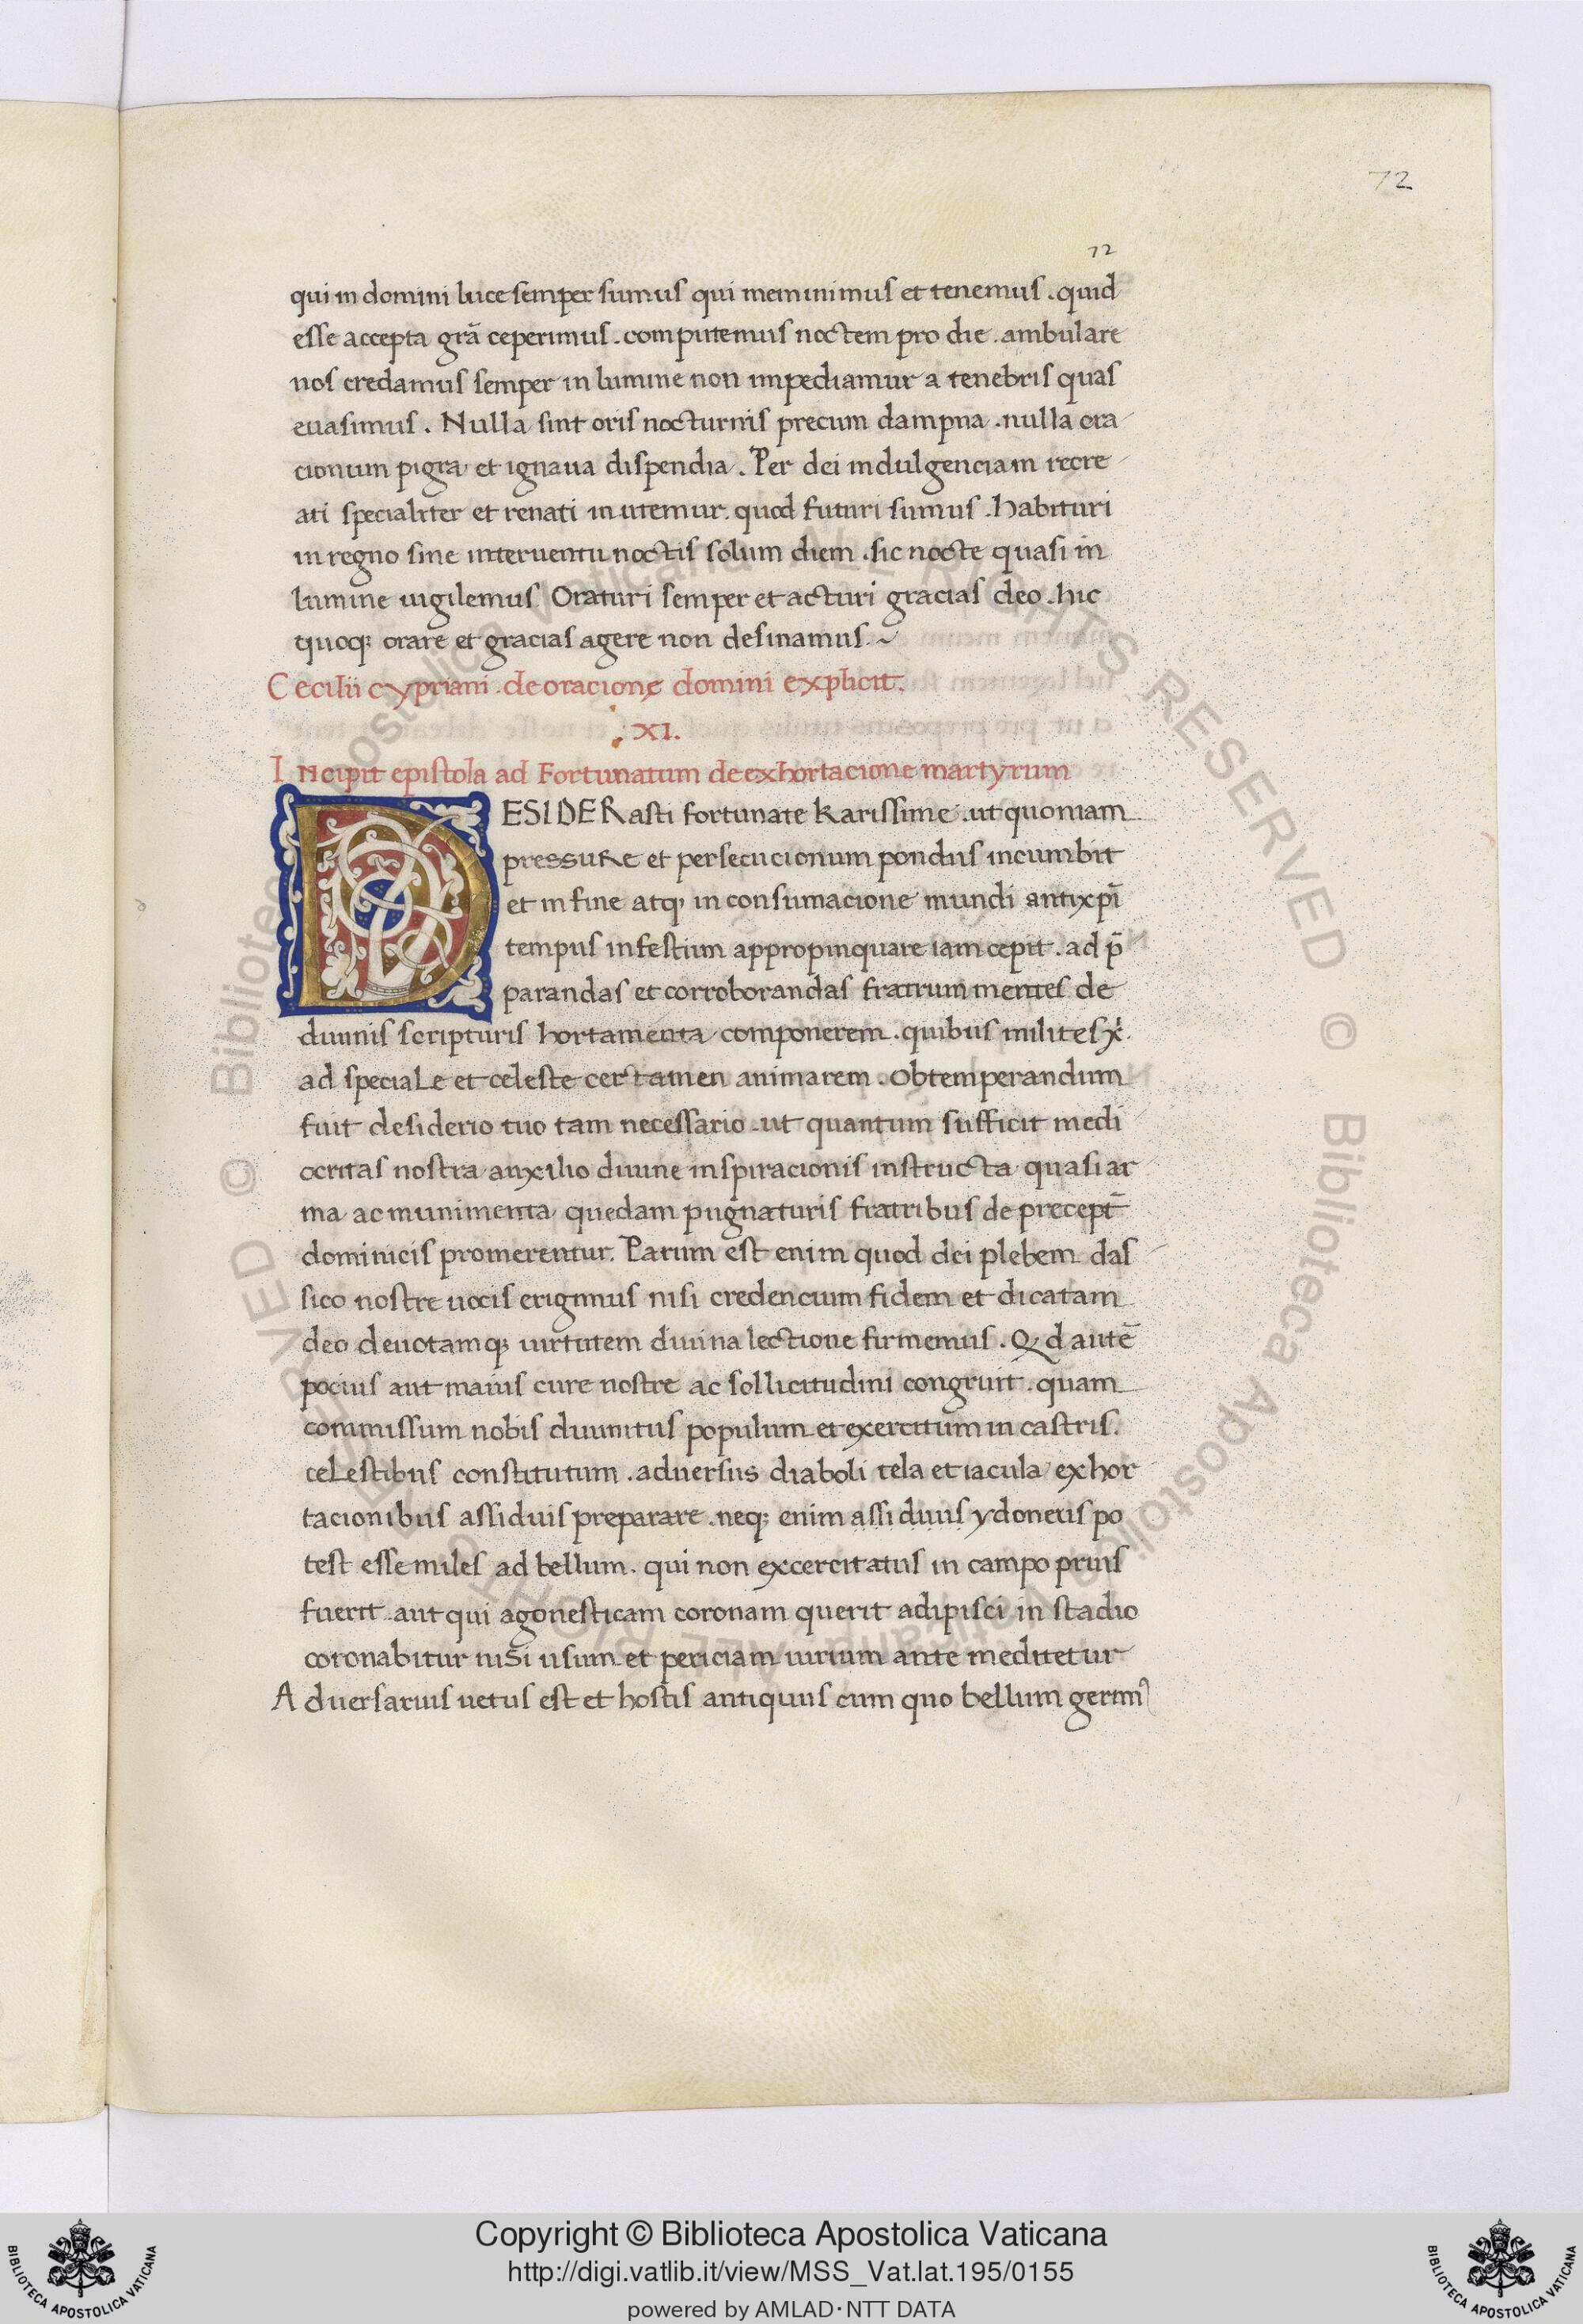 72
72
qui in domini luce semper sumus qui meminimus et tenemus . quid
esse accepta grã ceperimus . computemus noctem pro die . ambulare
nos credamus semper in lumine non impediamur a tenebris quas
euasimus . Nulla sint oris nocturnis precum dampna . nulla ora
cionum pigra et ignaua dispendia . Per dei indulgenciam recre
ati specialiter et renati inutemur . quod futuri sumus . habituri
in regno sine interuentu noctis solum diem . sic nocte quasi in
lumine uigilemus Oraturi semper et acturi gracias deo . hic
quoq; orare et gracias agere non desinamus . ~
Cecilii cypriani . de oracione domini explicit .
: XI .
Incipit epistola ad Fortunatum de exhortacione martyrum
DESIDERasti fortunate karissime . ut quoniam
pressure et persecucionum pondus incumbit
et in fine atq; in consumacione mundi antixp̄i
tempus infestum appropinquare iam cepit . ad p̄
parandas et corroborandas fratrum mentes de
diuinis scripturis hortamenta componerem . quibus milites x̄.
ad speciale et celeste certamen animarem . obtemperandum
fuit desiderio tuo tam necessario . ut quantum sufficit medi
ocritas nostra auxilio diuine inspiracionis instructa quasi ar
ma ac munimenta quedam pugnaturis fratribus de precept̄
dominicis promerentur . Parum est enim quod dei plebem das
sico nostre uocis erigimus nisi credencium fidem et dicatam
deo deuotamq; uirtutem diuina lectione firmemus . Qd autē
pocius aut maius cure nostre ac sollicitudini congruit . quam
commissum nobis diuinitus populum et exercitum in castris .
celestibus constitutum . aduersus diaboli tela et iacula exhor
tacionibus assiduis preparare . neq; enim assiduus ydoneus po
test esse miles ad bellum . qui non excercitatus in campo prius
fuerit . aut qui agonesticam coronam querit adipisci in stadio
coronabitur nisi usum et periciam uirium ante meditetur
Aduersarius uetus est et hostis antiquus cum quo bellum gerim⁹
Copyright © Biblioteca Apostolica Vaticana
http://digi.vatlib.it/view/MSS_Vat.lat.195/0155
powered by AMLAD·NTT DATA
BIBLIOTECA APOSTOLICA VATICANA
BIBLIOTECA APOSTOLICA VATICANA
© Biblioteca Apostolica Vaticana ALL RIGHTS RESERVED © Biblioteca Apostolica Vaticana ALL RIGHTS RESERVED